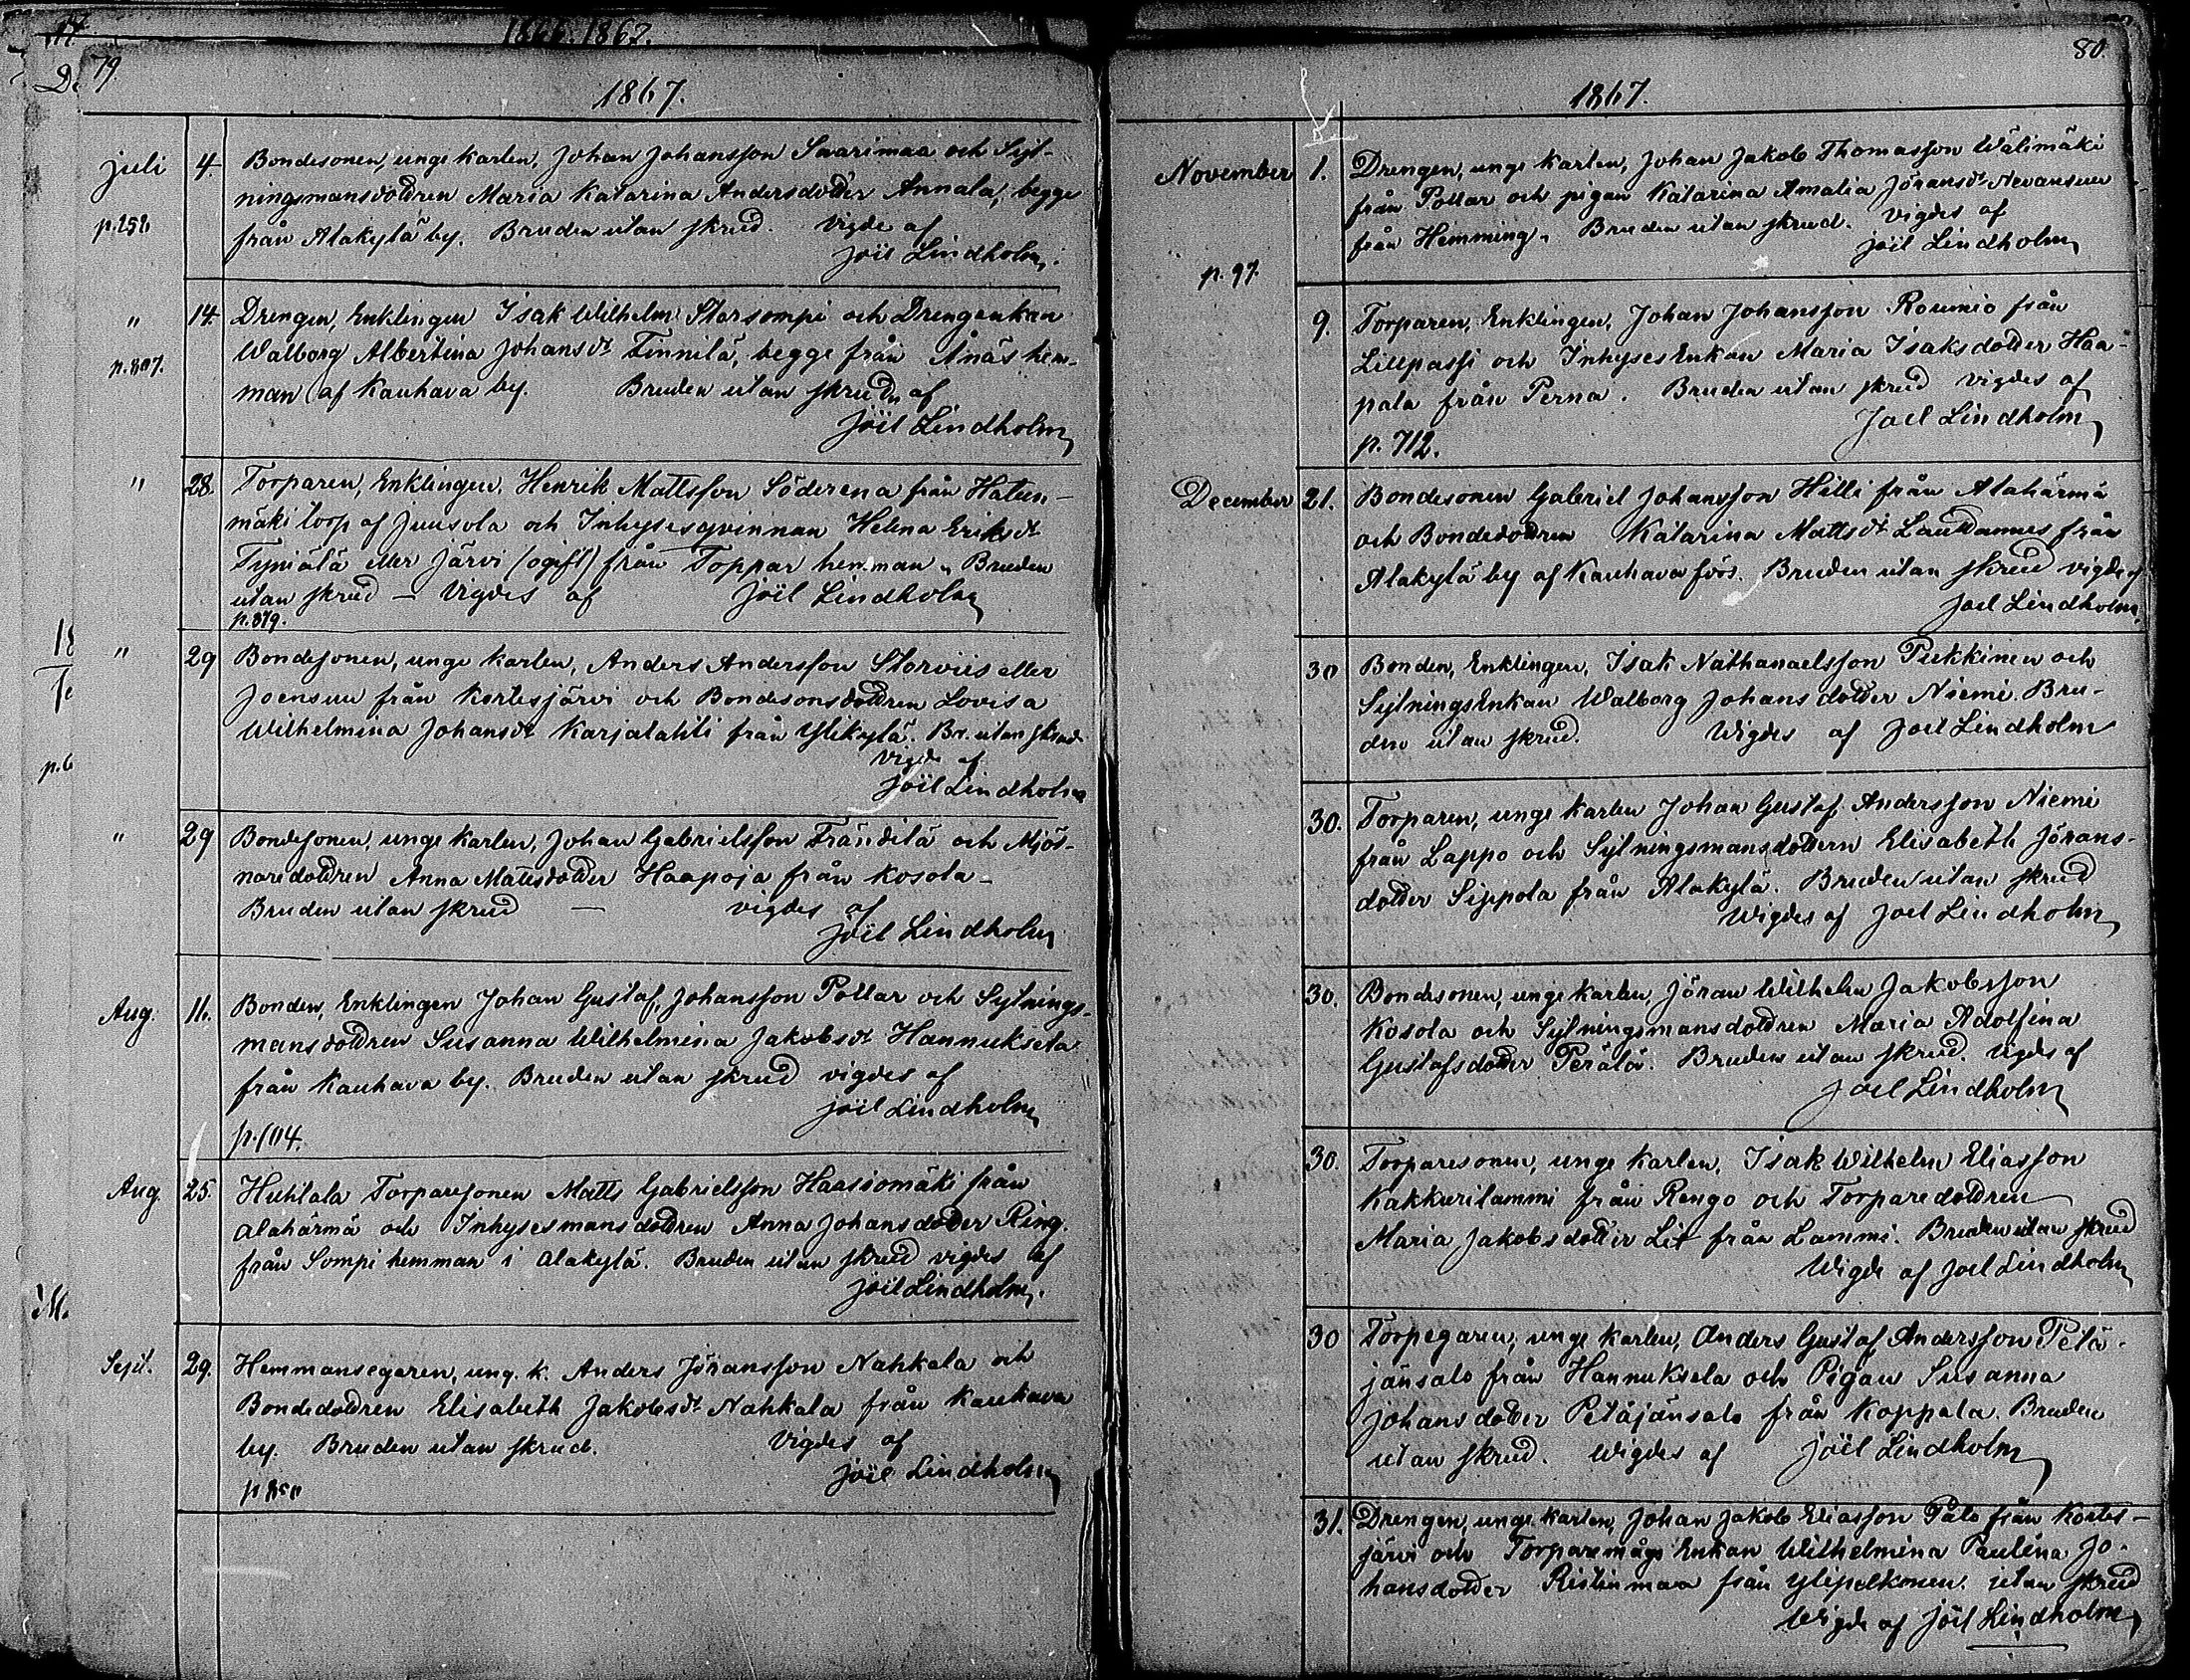 1866. 1867.
79.
1867.
juli 4. Bondesonen, unge karlen, Johan Johansson Saarimaa och Syt-
ningsmansdottren Maria Katarina Andersdotter Annala, begge
p. 252 från Alakylä by. Bruden utan skrud. Vigde af
Joël Lindholm.
" 14. Drengen, Enklingen Isak Wilhelm Storsompi och Drengenkan
Walborg Albertina Johansdr Finnilä, begge från Ånäs hem-
p. 807. man af Kauhava by. Bruden utan skrud af
Joël Lindholm
" 28. Torparen, Enklingen, Henrik Mattsson Söderena från
mäki torp af Juusola och Inhysesqvinnan Helena Eriksdr
eller Järvi (ogift) från Toppar hemman. Bruden
utan skrud – Vigdes af Joël Lindholm
p. 819.
" 29 Bondesonen, unge karlen, Anders Andersson Storviis eller
Joensuu från Kortesjärvi och Bondesonsdottren Lovisa
Wilhelmina Johansdr Karjalahti från Ylikylä. Br. utan skrud
Vigde af
Joël Lindholm
" 29 Bondesonen, unge karlen, Johan Gabrielsson Frändilä och Mjöl-
naredottren Anna Mattsdotter Haapoja från Kosola –
Bruden utan skrud – vigdes af
Joël Lindholm
Aug. 11. Bonden, Enklingen Johan Gustaf Johansson Pollar och Sytnings-
mansdottren Susanna Wilhelmina Jakobsdr Hannuksela
från Kauhava by. Bruden utan skrud vigdes af
Joël Lindholm
p. 104.
Aug. 25. Huhtala Torparesonen Matts Gabrielsson Haasiomäki från
Alahärmä och Inhysesmansdottren Anna Johansdotter Ring
från Sompi hemman i Alakylä. Bruden utan skrud vigdes af
Joël Lindholm.
Sept. 29. Hemmansegaren, ung. k. Anders Jöransson Nahkala och
Bondedottren Elisabeth Jakobsdr Nahkala från Kauhava
by. Bruden utan skrud. Vigdes af
Joël Lindholm
80.
1867.
November 1. Drengen, unge karlen, Johan Jakob Thomasson Wälimäki
från Pollar och pigan Katarina Amalia Jöransdr Nevansuu
från Hemming. Bruden utan skrud. Vigdes af
p. 97. Joël Lindholm
9. Torparen, Enklingen, Johan Johansson Roumio från
Lillpassi och Inhyses Enkan Maria Isaksdotter Haa-
pala från Perna. Bruden utan skrud vigdes af
Joel Lindholm
p. 712.
December 21. Bondesonen Gabriel Johansson Hilli från Alahärmä
och Bondedottren Katarina Mattsdr Lauttamus från
Alakylä by af Kauhava förs. Bruden utan skrud vigde af
Joel Lindholm
30 Bonden, Enklingen, Isak Nathanaelsson Pukkinen och
Sytnings Enkan Walborg Johansdotter Niemi. Bru-
den utan skrud. Wigdes af Joel Lindholm
30. Torparen, unge karlen Johan Gustaf Andersson Niemi
från Lappo och Sytningsmansdottern Elisabeth Jörans-
dotter Sippola från Alakylä. Bruden utan skrud
Wigdes af Joel Lindholm
30. Bondesonen, unge karlen, Jöran Wilhelm Jakobsson
Kosola och Sytningsmansdottren Maria Adolfina
Gustafsdotter Perälä. Bruden utan skrud. Vigdes af
Joel Lindholm
30. Torparesonen, unge karlen, Isak Wilhelm Eliasson
Kakkurilammi från Rengo och Torparedottren
Maria Jakobsdotter Lit från Lammi. Bruden utan skrud
Wigde af Joel Lindholm
30 Torpegaren, unge karlen, Anders Gustaf Andersson Petä-
jänsalo från Hannuksela och Pigan Susanna
Johansdotter Petäjänsalo från Koppala. Bruden
utan skrud. Wigdes af Joël Lindholm
31. Drengen, unge karlen, Johan Jakob Eliasson Palo från Kortes-
järvi och Torparemågs Enkan Wilhelmina Paulina Jo-
hansdotter Ristinmaa från Ylipelkonen. utan skrud
Wigde af Joël Lindholm